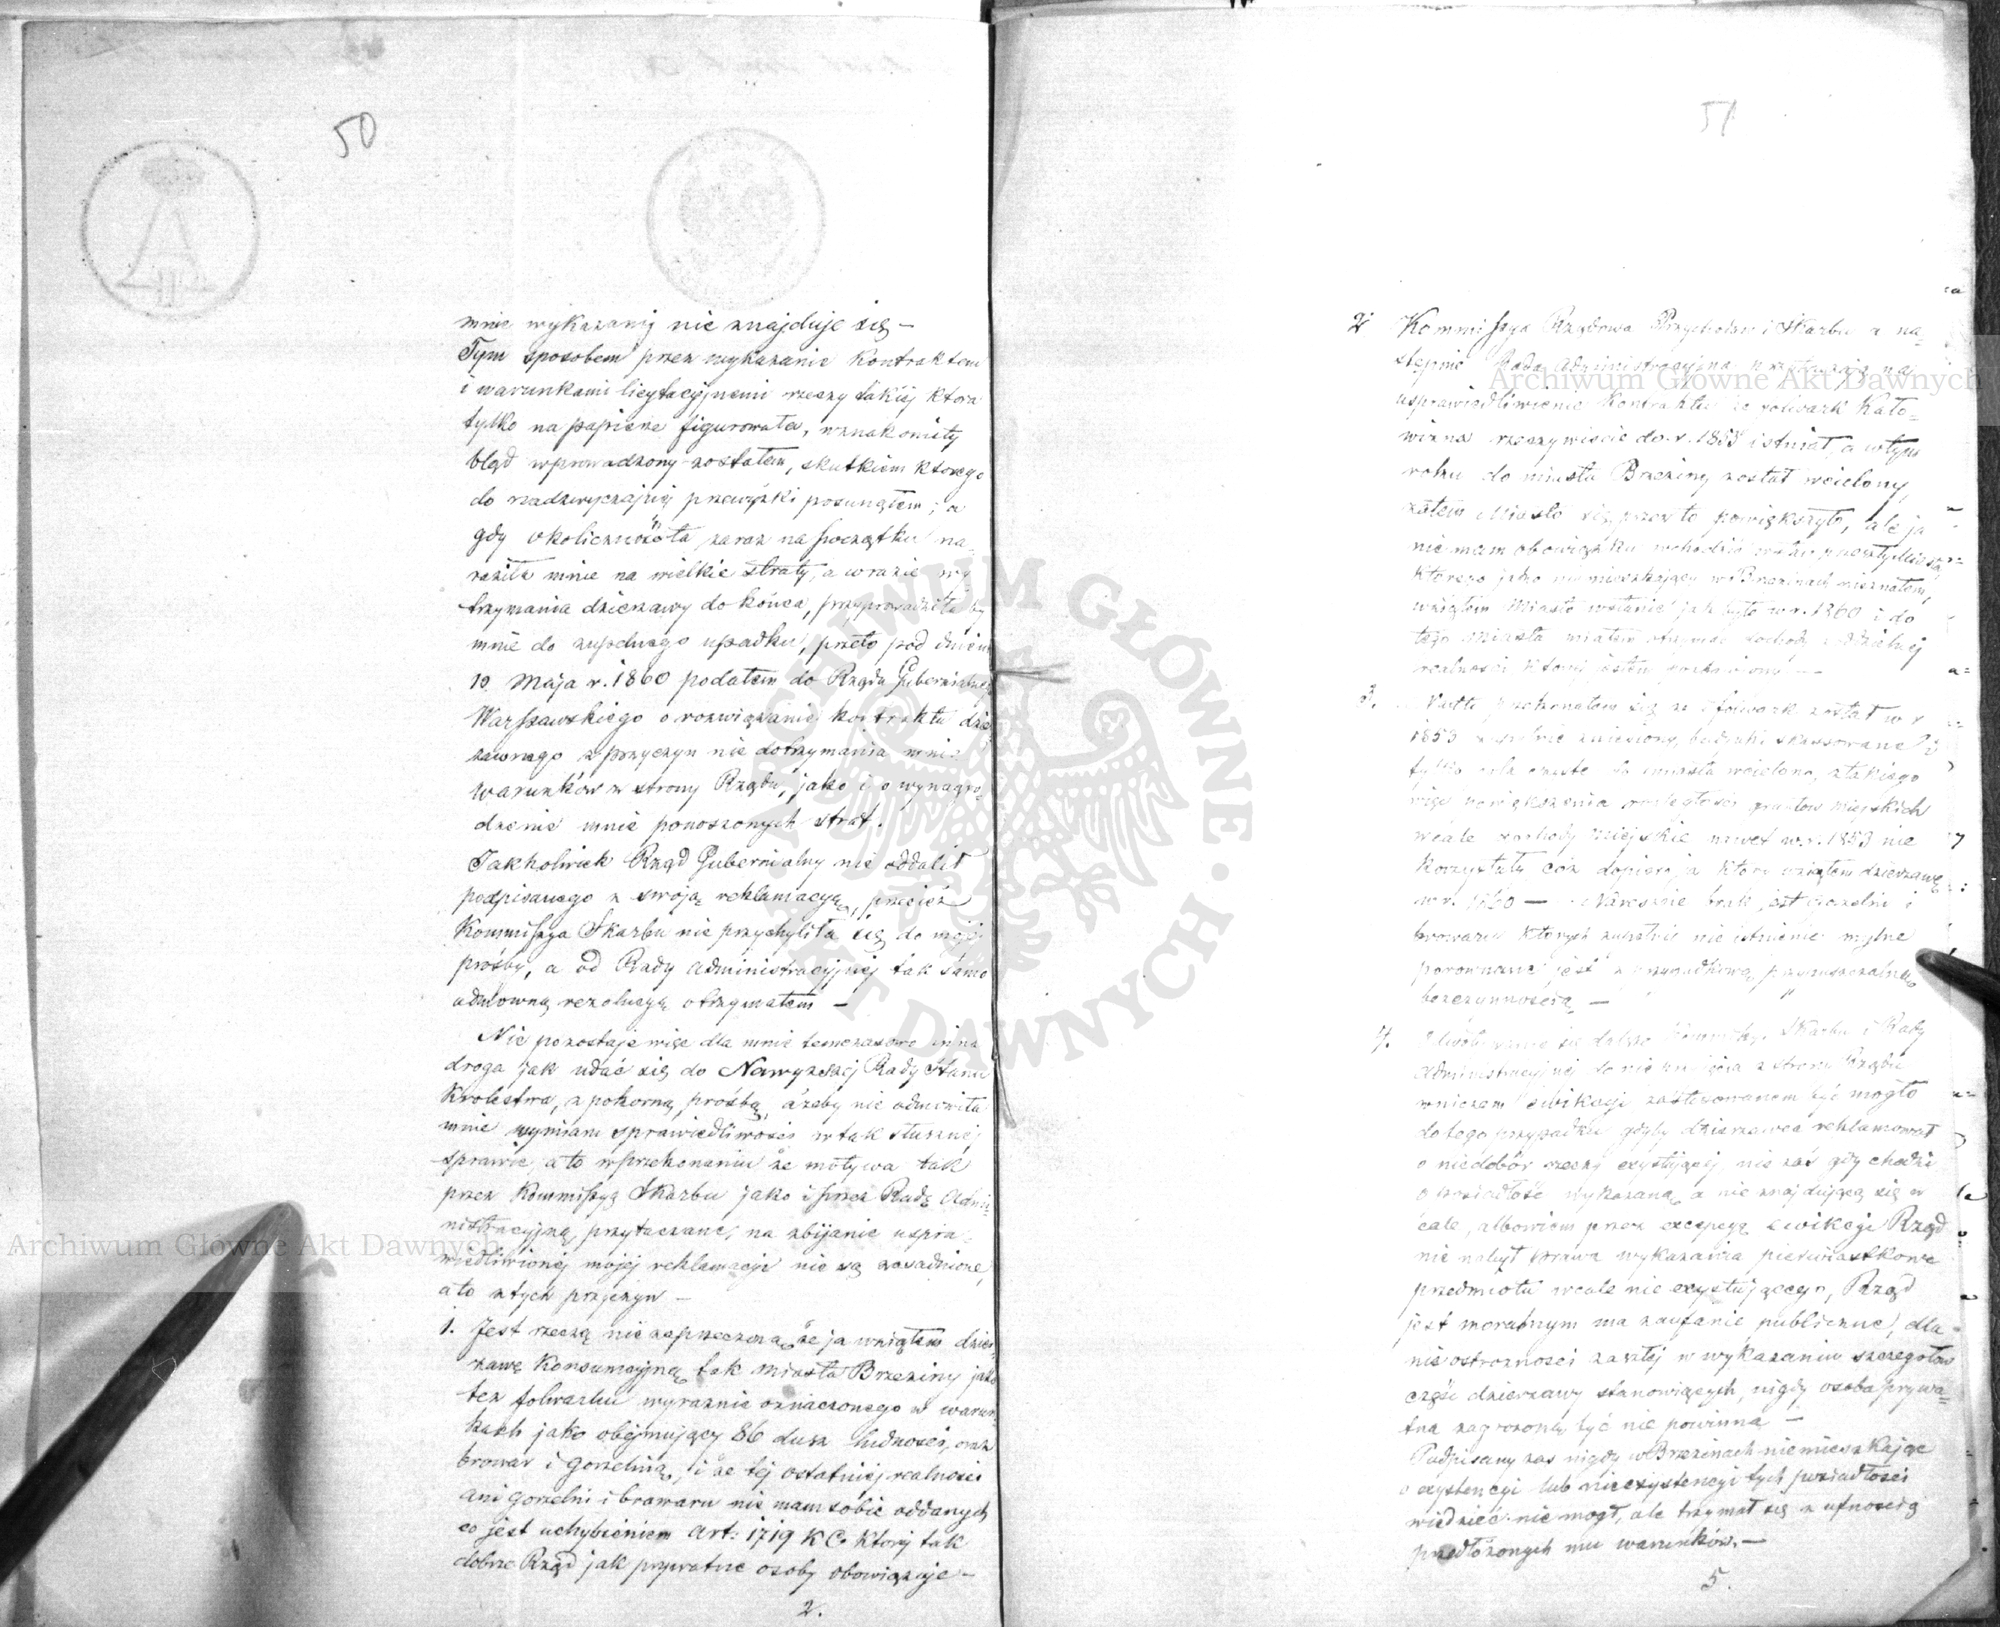 50
mnie wykazanej nie znajduje się –
Tym sposobem przez wykazanie kontraktem
i warunkami licytacyjnemi rzeczy takiej ktora
tylko na papierze figurowała, w znakomity
błąd wprowadzony zostałem, skutkiem ktorego
do nadzwyczajnej przewyżki posunąłem; a
gdy okoliczność ta zaraz na początku na-
raziła mnie na wielkie straty, a w razie wy
trzymania dzierzawy do końca, przyprowadziła by
mnie do zupełnego upadku, przeto pod dniem
10 Maja r. 1860 podałem do Rządu Gubernialnego
Warszawskiego o rozwiązanie kontraktu dzier
zawnego z przyczyn nie dotrzymania mnie
warunków ze strony Rządu, jako i o wynagro-
dzenie mnie ponoszonych strat.
Jakkolwiek Rząd Gubernialny nie oddalił
podpisanego z swoją reklamacyą, przecież
Kommissya Skarbu nie przychyliła się do mojej
prośby, a od Rady Administracyjnej tak samo
odmowną rezolucyą otrzymałem –
Nie pozostaje więc dla mnie temczasowo inna
droga jak udać się do Nawyższej Rady Stanu
Krolestwa, z pokorną prośbą, ażeby nie odmówiła
mnie wymiaru sprawiedliwości w tak słusznej
sprawie, a to w przekonaniu że motywa tak
przez Kommissyą Skarbu jako i przez Radę Admi-
nistracyjną przytaczane, na zbijanie uspra-
wiedliwionej mojej reklamacyi nie są zasadnione,
a to z tych przyczyn –
1. Jest rzeczą nie zaprzeczoną że ja wziąłem dzier
zawę Konsumcyjną tak miasta Brzeziny jako
tez folwarku wyraznie oznaczonego w warun
kach jako obejmujący 86 dusz ludności, oraz
browar i gorzelnią, i że tej ostatniej realności
ani gorzelni i browaru nie mam sobie oddanych
co jest uchybieniem art: 1719 KC. ktory tak
dobrze Rząd jak prywatne osoby obowiązuje –
2.
51
2. Kommissya Rządowa Przychodow i Skarbu a na-
stępnie Rada Administracyjna przytaczają na
usprawiedliwienie Kontraktu że folwark Kało-
wizna rzeczywiście do r. 1853 istniał, a w tym
roku do miasta Brzeziny został wcielony,
zatem Miasto się przez to powiększyło, ale ja
nie mam obowiązku wchodzić w
ktorego jako nie mieszkający w Brzezinach nieznałem,
wziąłem Miasto w stanie jak było w r. 1860 i do
tego Miasta miałem dochody oddzielnej
realności ktorej
3. przekonałem się że folwark został w r
1853 zupełnie zniesiony, budynki skassowane i
tylko do miasta wcielone, z takiego
więc powiększenia rozległości gruntow miejskich
wcale dochody Miejskie nawet w r. 1853 nie
korzystały coż dopiero ja ktory wziąłem dzierzawę
w r. 1860 — Nareszcie brak jest gorzelni i
browaru ktorych zupełnie nie istnienie mylne
porownane jest z przypuszczalną
bezczynnością –
4. się dalsze Kommissyi Skarbu i Rady
Administracyjnej do nie przyjęcia z strony Rządu
w niczem ewikcyi zastosowanem być mogło
do tego przypadku gdyby dzierzawca reklamował
o niedobór rzeczy exystującej, nie zaś gdy chodzi
o posiadłość wykazaną a nie znajdującą się w
cale, albowiem przez excepcyą ewikcyi Rząd
nie nabył prawa wykazania pierwiastkowo
przedmiotu wcale nie exystującego, Rząd
jest moralnym ma zaufanie publiczne, dla
nieostrozności zaszłej w wykazaniu szczegołow
część dzierzawy stanowiących, nigdy osoba prywa-
tna zagrozoną być nie powinna –
Podpisany zas nigdy w Brzezinach nie mieszkając
o exystencyi lub nieexystencyi tych posiadłości
wiedzieć nie mogł, ale trzymał się z ufnością
przedłożonych mu warunków. –
5.